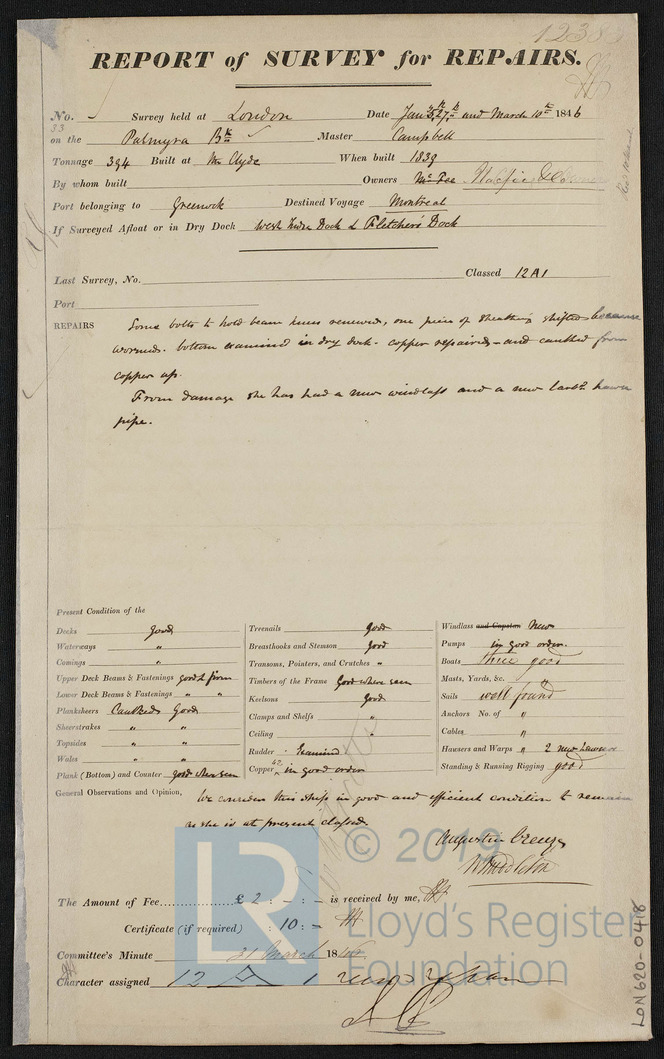 1238
REPORT of SURVEY for REPAIRS.
No. Survey held at London Date Jan and March 10th 1846
33
on the Palmyra Bk Master Campbell
Tonnage 394 Built at the Clyde When built 1839
By whom built Owners McFee
Port belonging to Greenock Destined Voyage Montreal
If Surveyed Afloat or in Dry Dock West India Dock & Fletcher's Dock
Last Survey, No. Classed 12 A1
Port
REPAIRS Some bolts to hold beam knees renewed, one piece of sheathing shifted because
wormed. bottom examined in dry dock - copper repaired - and caulked from
copper up.
From damage she has had a new windlass and a new larbd hawse
pipe.
Present Condition of the
Decks Good
Waterways "
Comings "
Upper Deck Beams & Fastenings good & firm
Lower Deck Beams & Fastenings " "
Planksheers Caulked Good
Sheerstrakes " "
Topsides " "
Wales " "
Plank (Bottom) and Counter good where seen
Treenails good
Breasthooks and Stemson good
Transoms, Pointers, and Crutches "
Timbers of the Frame Good where seen
Keelsons Good
Clamps and Shelfs "
Ceiling "
Rudder Examined
Copper in good order
Windlass and Capstan New
Pumps in good order.
Boats three good
Masts, Yards, &c. "
Sails well found
Anchors No. of "
Cables "
Hawsers and Warps " 2 new Hawsers
Standing & Running Rigging good
General Observations and Opinion, We consider this ship in good and efficient condition to remain
as she is at present classed.
Augustin Creuze
W Middleton
The Amount of Fee £ 2 : - : - is received by me,
Certificate (if required) : 10 : -
Committee's Minute 31 March 1846
Character assigned 12 A 1
LR
© 2019
Lloyd's Register
Foundation
LON620-0418